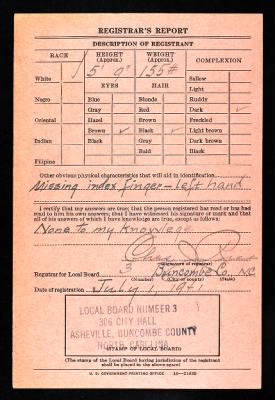 REGISTRAR'S REPORT
DESCRIPTION OF REGISTRANT
RACE HEIGHT (Approx.) WEIGHT (Approx.) COMPLEXION
5' 9" 155#
White Sallow
EYES HAIR Light
Negro Blue Blonde Ruddy
Gray Red Dark ✓
Oriental Hazel Brown Freckled
Brown ✓ Black ✓ Light brown
Indian Black Gray Dark brown
Bald Black
Filipino
Other obvious physical characteristics that will aid in identification
Missing index finger - left hand
I certify that my answers are true; that the person registered has read or has had
read to him his own answers; that I have witnessed his signature or mark and that
all of his answers of which I have knowledge are true, except as follows:
None to my knowlege
Chas
(Signature of registrar)
Registrar for Local Board 3 Buncombe Co. NC
(Number) (City or county) (State)
Date of registration July 1 1941
LOCAL BOARD NUMBER 3
306 CITY HALL
ASHEVILLE, BUNCOMBE COUNTY
NORTH CAROLINA
(STAMP OF LOCAL BOARD)
(The stamp of the Local Board having jurisdiction of the registrant
shall be placed in the above space)
U. S. GOVERNMENT PRINTING OFFICE 16—21630